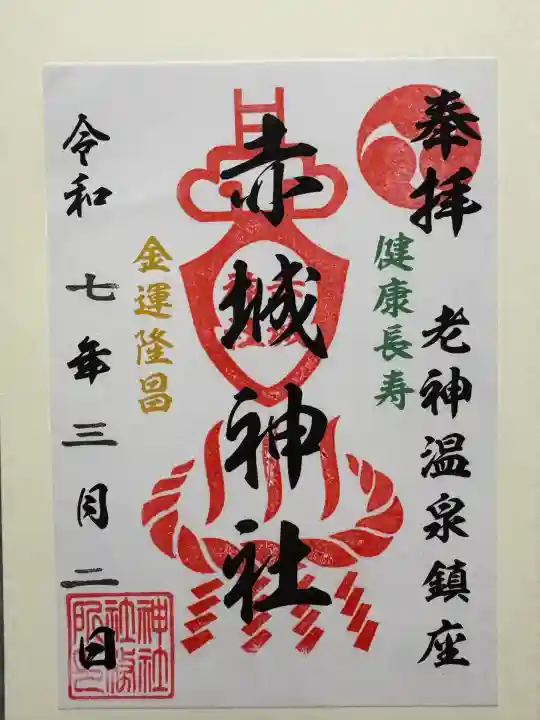 奉拝
老神温泉鎮座
健康長寿
赤城神社
金運隆昌
令和 七年 三月 二日